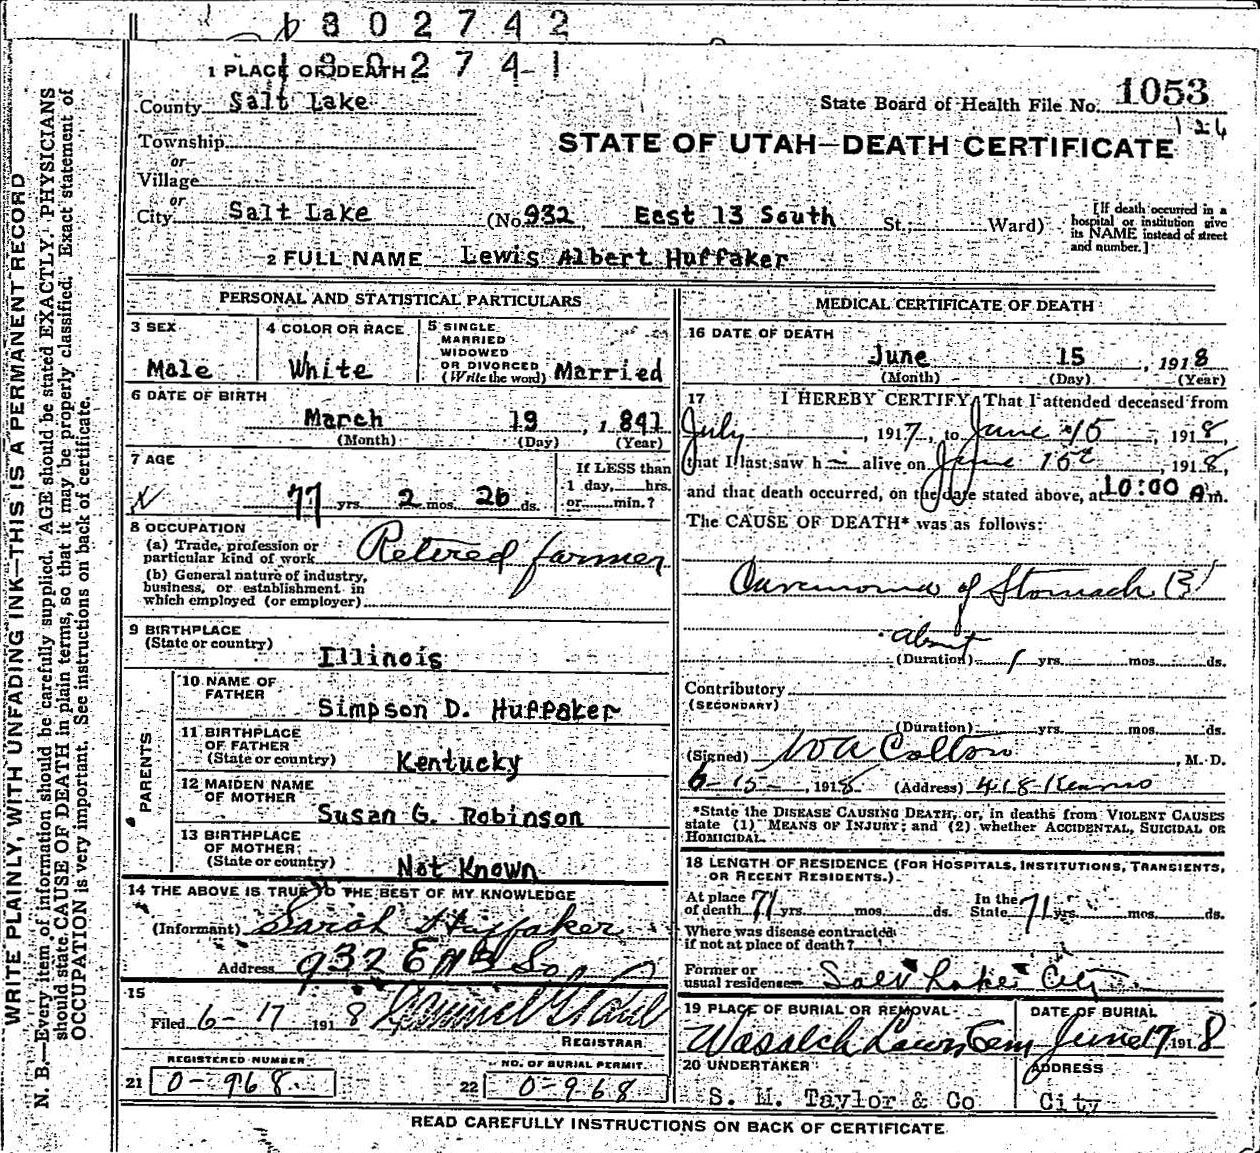 1302742
1302741
1 PLACE OF DEATH
County Salt Lake
State Board of Health File No. 1053
126
Township
or
Village
or
City Salt Lake (No. 932, East 13 South St., Ward)
STATE OF UTAH—DEATH CERTIFICATE
[If death occurred in a
hospital or institution give
its NAME instead of street
and number.]
2 FULL NAME Lewis Albert Huffaker
PERSONAL AND STATISTICAL PARTICULARS
3 SEX
Male
4 COLOR OR RACE
White
5 SINGLE
MARRIED
WIDOWED
OR DIVORCED
(Write the word) Married
6 DATE OF BIRTH
March 19, 1841
(Month) (Day) (Year)
7 AGE
77 yrs. 2 mos. 26 ds.
If LESS than
1 day, hrs.
or min.?
8 OCCUPATION
(a) Trade, profession or
particular kind of work Retired farmer
(b) General nature of industry,
business, or establishment in
which employed (or employer)
9 BIRTHPLACE
(State or country)
Illinois
PARENTS
10 NAME OF
FATHER
Simpson D. Huffaker
11 BIRTHPLACE
OF FATHER
(State or country) Kentucky
12 MAIDEN NAME
OF MOTHER
Susan G. Robinson
13 BIRTHPLACE
OF MOTHER
(State or country)
Not Known
14 THE ABOVE IS TRUE TO THE BEST OF MY KNOWLEDGE
(Informant) Sarah Huffaker
Address 932 E 13 So
15
Filed 6-17 1918
REGISTRAR
REGISTERED NUMBER
21 0-968
NO. OF BURIAL PERMIT
22 0-968
MEDICAL CERTIFICATE OF DEATH
16 DATE OF DEATH
June 15, 1918
(Month) (Day) (Year)
17 I HEREBY CERTIFY, That I attended deceased from
July, 1917, to June 15, 1918,
that I last saw h alive on June 15, 1918,
and that death occurred, on the date stated above, at 10:00 A m.
The CAUSE OF DEATH* was as follows:
Carcinoma of Stomach
about
(Duration) 1 yrs. mos. ds.
Contributory
(SECONDARY)
(Duration) yrs. mos. ds.
(Signed) W A Colton, M. D.
6-15-, 1918 (Address) 418 Kearns
*State the DISEASE CAUSING DEATH, or, in deaths from VIOLENT CAUSES
state (1) MEANS OF INJURY; and (2) whether ACCIDENTAL, SUICIDAL OR
HOMICIDAL.
18 LENGTH OF RESIDENCE (FOR HOSPITALS, INSTITUTIONS, TRANSIENTS,
OR RECENT RESIDENTS.)
At place
of death 71 yrs. mos. ds.
In the
State 71 yrs. mos. ds.
Where was disease contracted
if not at place of death?
Former or
usual residence Salt Lake City
19 PLACE OF BURIAL OR REMOVAL
Wasatch Lawn Cem
DATE OF BURIAL
June 17 1918
20 UNDERTAKER
S. M. Taylor & Co
ADDRESS
City
READ CAREFULLY INSTRUCTIONS ON BACK OF CERTIFICATE
WRITE PLAINLY, WITH UNFADING INK—THIS IS A PERMANENT RECORD
N. B.—Every item of information should be carefully supplied. AGE should be stated EXACTLY. PHYSICIANS
should state CAUSE OF DEATH in plain terms, so that it may be properly classified. Exact statement of
OCCUPATION is very important. See instructions on back of certificate.